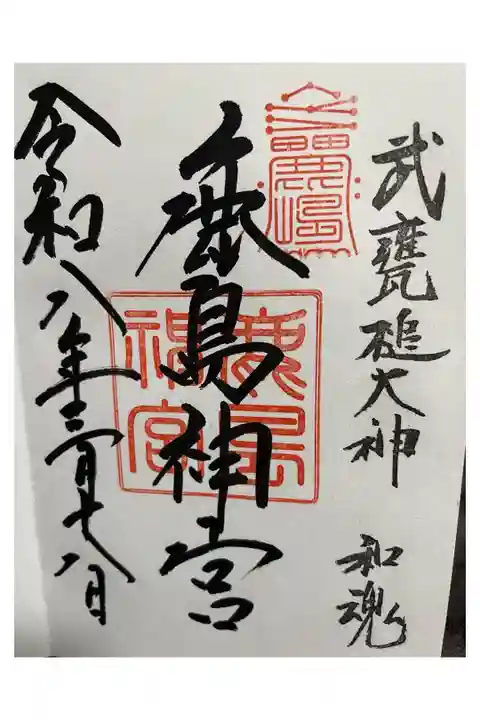 武甕槌大神 和魂
鹿島神宮
鹿島神宮
令和八年三月十八日